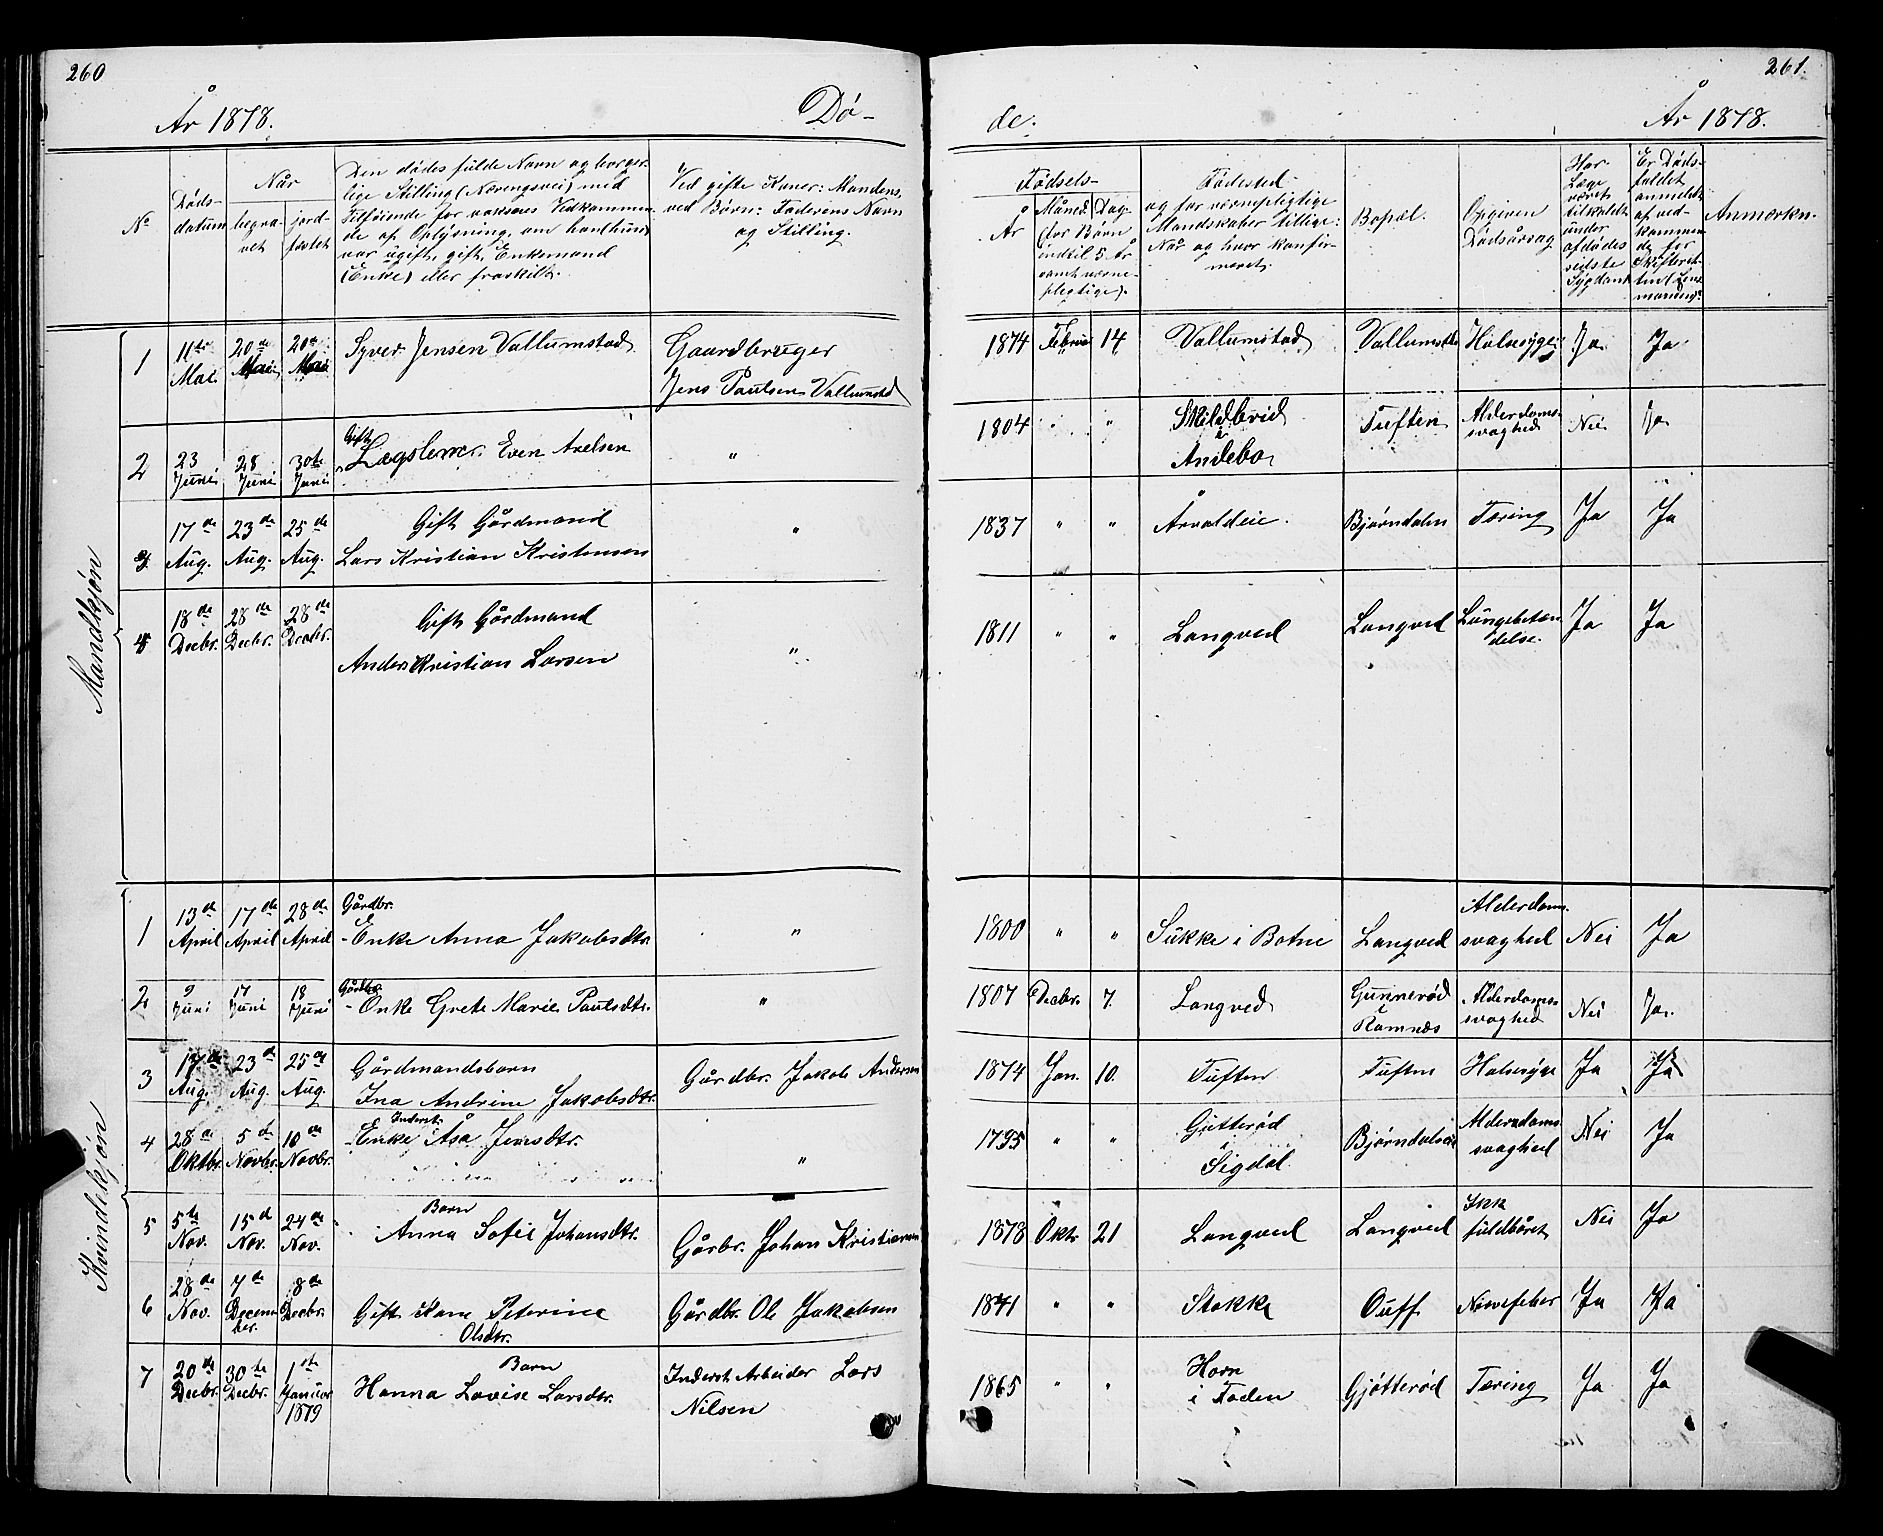 260
År 1878.
Dø-
de.
År 1878.
261.
No
Døds-
datum
Når
begra-
vet
jord-
fæstet
Den dødes fulde Navn og borger-
lige Stilling (Næringsvei) med
Tilføiende for voksnes Vedkommen-
de af Oplysning, om han(hun)
var ugift, gift, Enkemand
(Enke) eller fraskilt.
Ved gifte Koner: Mandens,
ved Børn: Faderens Navn
og Stilling.
Fødsels-
År
Måned Dag
(for Børn
indtil 5 År
samt værne-
pligtige).
Fødested
og for værnepligtige
Mandskaber tillige:
Når og hvor konfir-
meret.
Bopæl.
Opgiven
Dødsårsag
Har
Læge
været
tilkaldt
under
afdødes
sidste
Sygdom
Er Døds-
faldet
anmeldt
af ved-
kommen-
de for
Skifteret-
ten
Anmærkn.
Mandkjøn
1 11te Mai 20de Mai 20de Mai Syver Jensen Vallumstad Gaardbruger
Jens Paulsen Vallumstad
1874 Februar 14 Vallumstad Halssyge Ja Ja
2 23 Juni 28 Juni 30te Juni Gift
Lægslem. Even Axelsen "
1804 " " Skildbrid
i
Andebo Tuften Alderdoms-
svaghed Nei Ja
3 17de Aug. 23de Aug. 25de Aug. Gift Gårdmand
Lars Kristian Kristensen "
1837 " " Årvoldeie. Bjørndalen Tæring Ja Ja
4 18de Decbr. 28de Decbr. 28de Decbr. Gift Gårdmand
Anders Kristian Larsen "
1811 " " Langved Langved Lungebetæn-
delse. Ja Ja
Kvindekjøn
1 13de April 17de April 28de April Gårdbr.
- Enke Anna Jakobsdtr. "
1800 " " Sukke i Botne Langved Alderdoms-
svaghed Nei Ja
2 9 Juni 17 Juni 18 Juni Gårdbr.
- Enke Grete Marie Paulsdtr. "
1807 Decbr. 7. Langved Gunnerød
Ramnæs Alderdoms-
svaghed Nei Ja.
3 17de Aug. 23de Aug. 25de Aug. Gårdmandsbarn
Ina Andrine Jakobsdtr. Gårdbr. Jakob Andersen
1874 Jan. 10. Tuften Tuften Halssyge Ja Ja
4 28de Oktbr. 5te Novbr. 10de Novbr. Inderst.
Enke Åsa Jensdtr. "
1795 " " Gjetterød
Sigdal. Alderdoms-
svaghed Nei Ja
5 5te Nov. 15de Nov. 24de Nov. Barn
Anna Sofie Johansdtr. Gårbr. Johan Kristiansen
1878 Okt. 21 Langved Langved Ikke
fuldbåret Nei Ja
6 28de Nov. 7de Decem-
ber. 8de Decbr. Gift Kone Peterine
Olsdtr. Gårdbr. Ole Jakobsen
1841 " " Stokke Ouff Nervefeber Ja Ja
7 20de Decbr. 30te Decbr. 1ste Januar
1879 Barn
Hanna Lovise Larsdtr. Inderst Arbeider Lars
Nilsen
1865 " " Horn
i Foden Gjøtterød Tæring Ja Ja